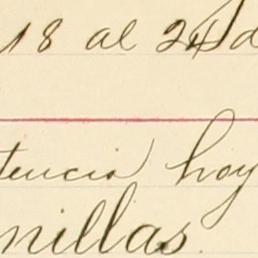 18 al 24 d
tencia hoy
nillas.